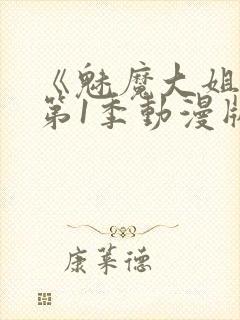 《魅魔大姐
第1季動漫版
康萊德